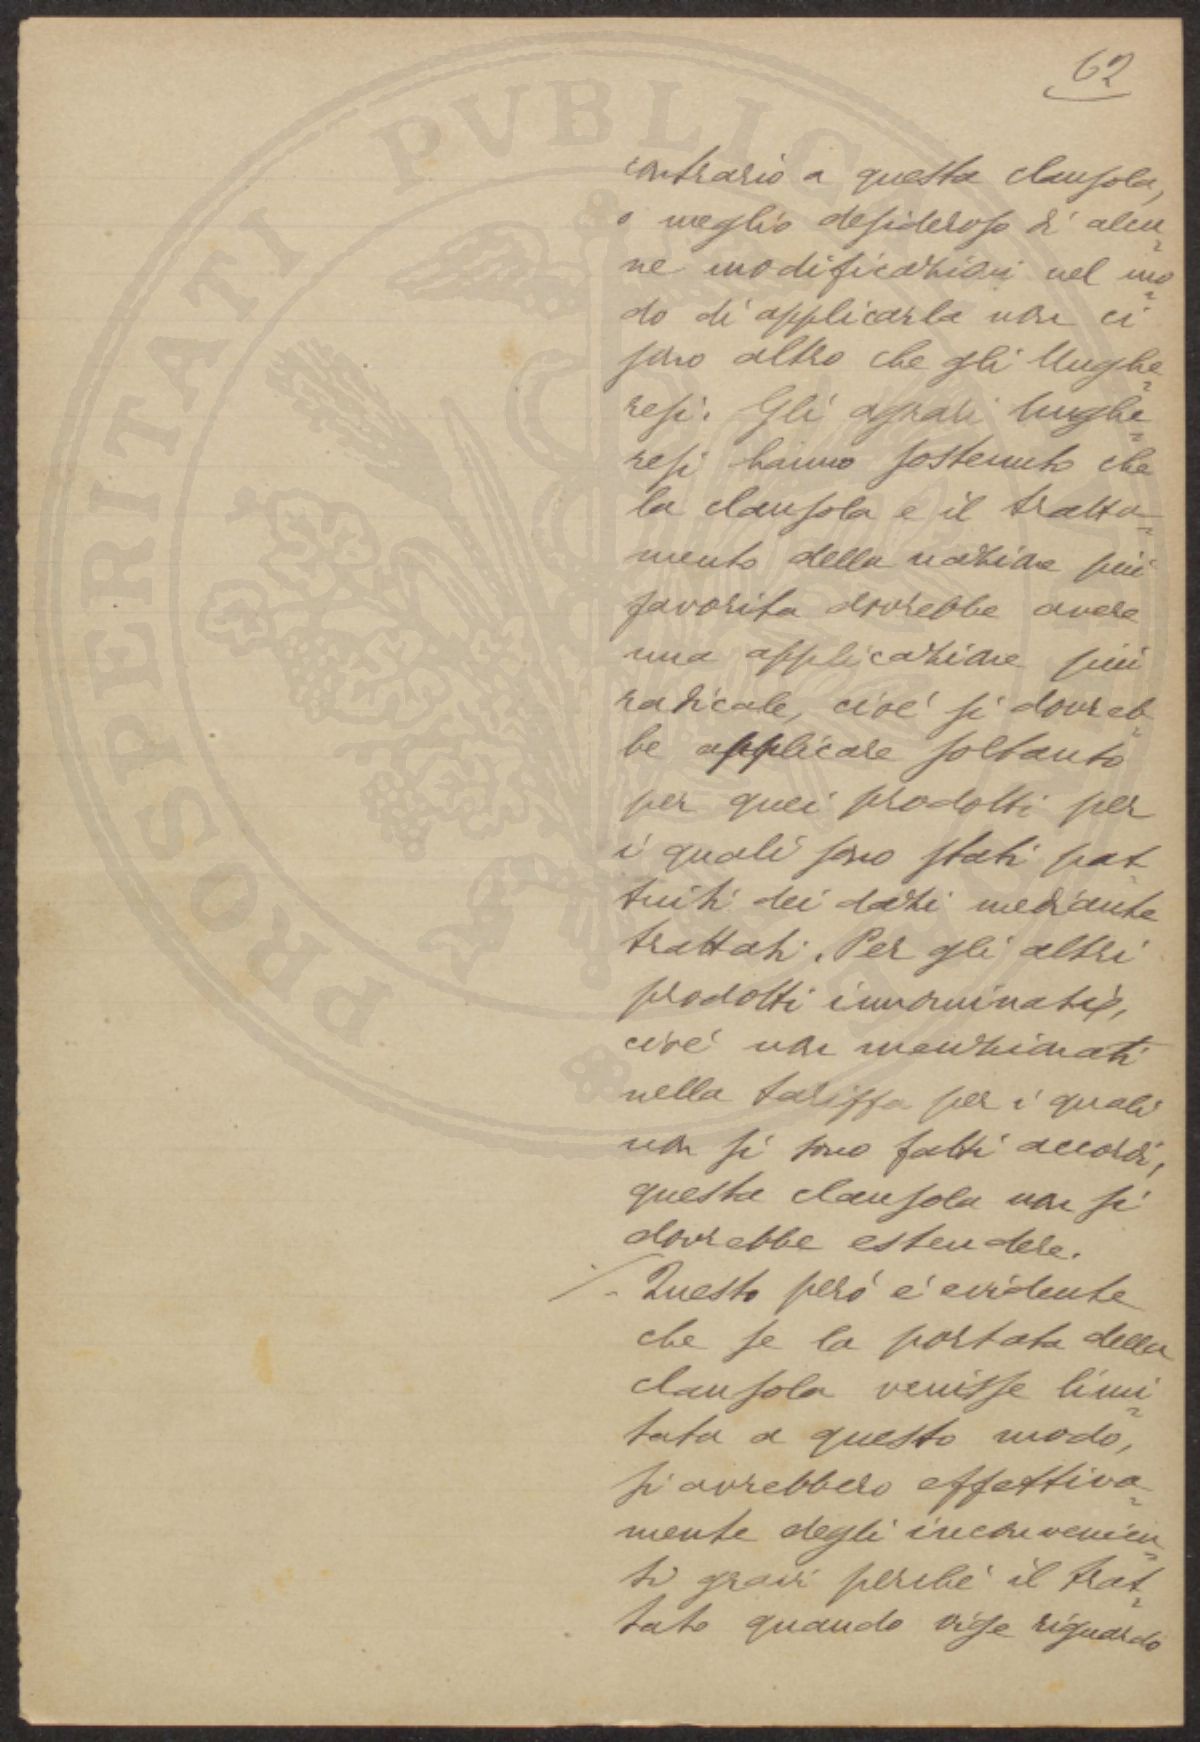 62
contrario a questa clausola,
o meglio desideroso di alcu-
ne modificazioni nel mo-
do di applicarla non ci
sono altro che gli Unghe-
resi. Gli agrari Unghe-
resi hanno sostenuto che
la clausola e il tratta-
mento della nazione più
favorita dovrebbe avere
una applicazione più
radicale, cioé si dovreb-
be applicare soltanto
per quei prodotti per
i quali sono stati pat-
tuiti dei dazi mediante
trattati. Per gli altri
prodotti innominati,
cioé non menzionati
nella tariffa per i quali
non si sono fatti accordi,
questa clausola non si
dovrebbe estendere.
/- Questo peró é evidente
che se la portata della
clausola venisse limi-
tata a questo modo,
si avrebbero effettiva-
mente degli inconvenien-
ti gravi perché il trat-
tato quando vige riguardo
PROSPERITATI PVBLIC